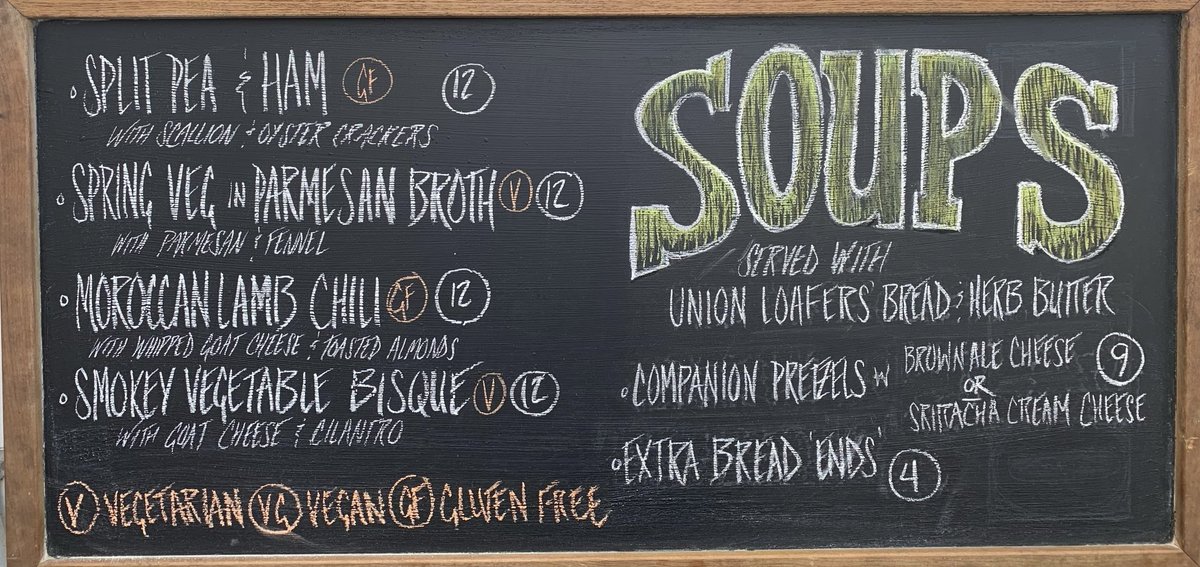 SPLIT PEA & HAM GF 12
WITH SCALLION & OYSTER CRACKERS
SPRING VEG IN PARMESAN BROTH V 12
WITH PARMESAN & FENNEL
MOROCCAN LAMB CHILI GF 12
WITH WHIPPED GOAT CHEESE & TOASTED ALMONDS
SMOKEY VEGETABLE BISQUE V 12
WITH GOAT CHEESE & CILANTRO
V VEGETARIAN VG VEGAN GF GLUTEN FREE
SOUPS
SERVED WITH
UNION LOAFERS' BREAD & HERB BUTTER
COMPANION PRETZELS W BROWN ALE CHEESE 9
OR
SRIRACHA CREAM CHEESE
EXTRA BREAD 'ENDS' 4